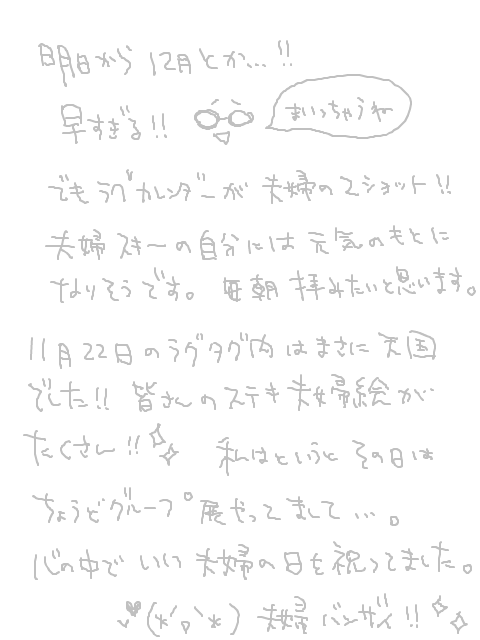 明日から12月とか…!!
早すぎる!!
まいっちゃうね
でもラグカレンダーが夫婦の2ショット!!
夫婦スキーの自分には元気のもとに
なりそうです。毎朝拝みたいと思います。
11月22日のラグタグ内はまさに天国
でした!!皆さんのステキ夫婦絵が
たくさん!! 私はというとその日は
ちょうどグループ展やってまして…。
心の中でいい夫婦の日を祝ってました。
(*'▽'*) 夫婦バンザイ!!